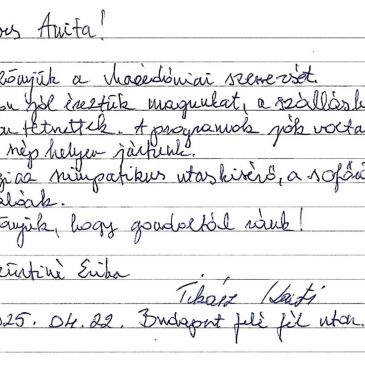 ves Anita!
szönjük a Macedóniai szervezést.
on jól éreztük magunkat, a szállások
on tetszettek. A programok jók voltak
szép helyen jártunk.
szimpatikus utaskísérő, a sofőrö
nyjük, hogy gondoltál ránk!
Erika
Tikász Kati
025. 04. 22. Budapest felé fél úton.